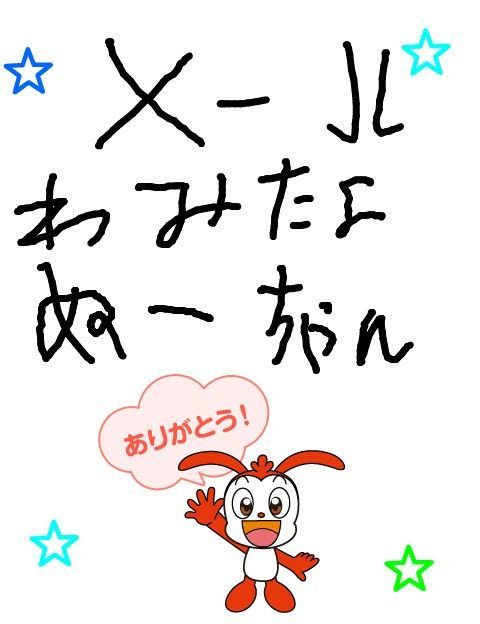 メール
わみたよ
ぬーちゃん
ありがとう!